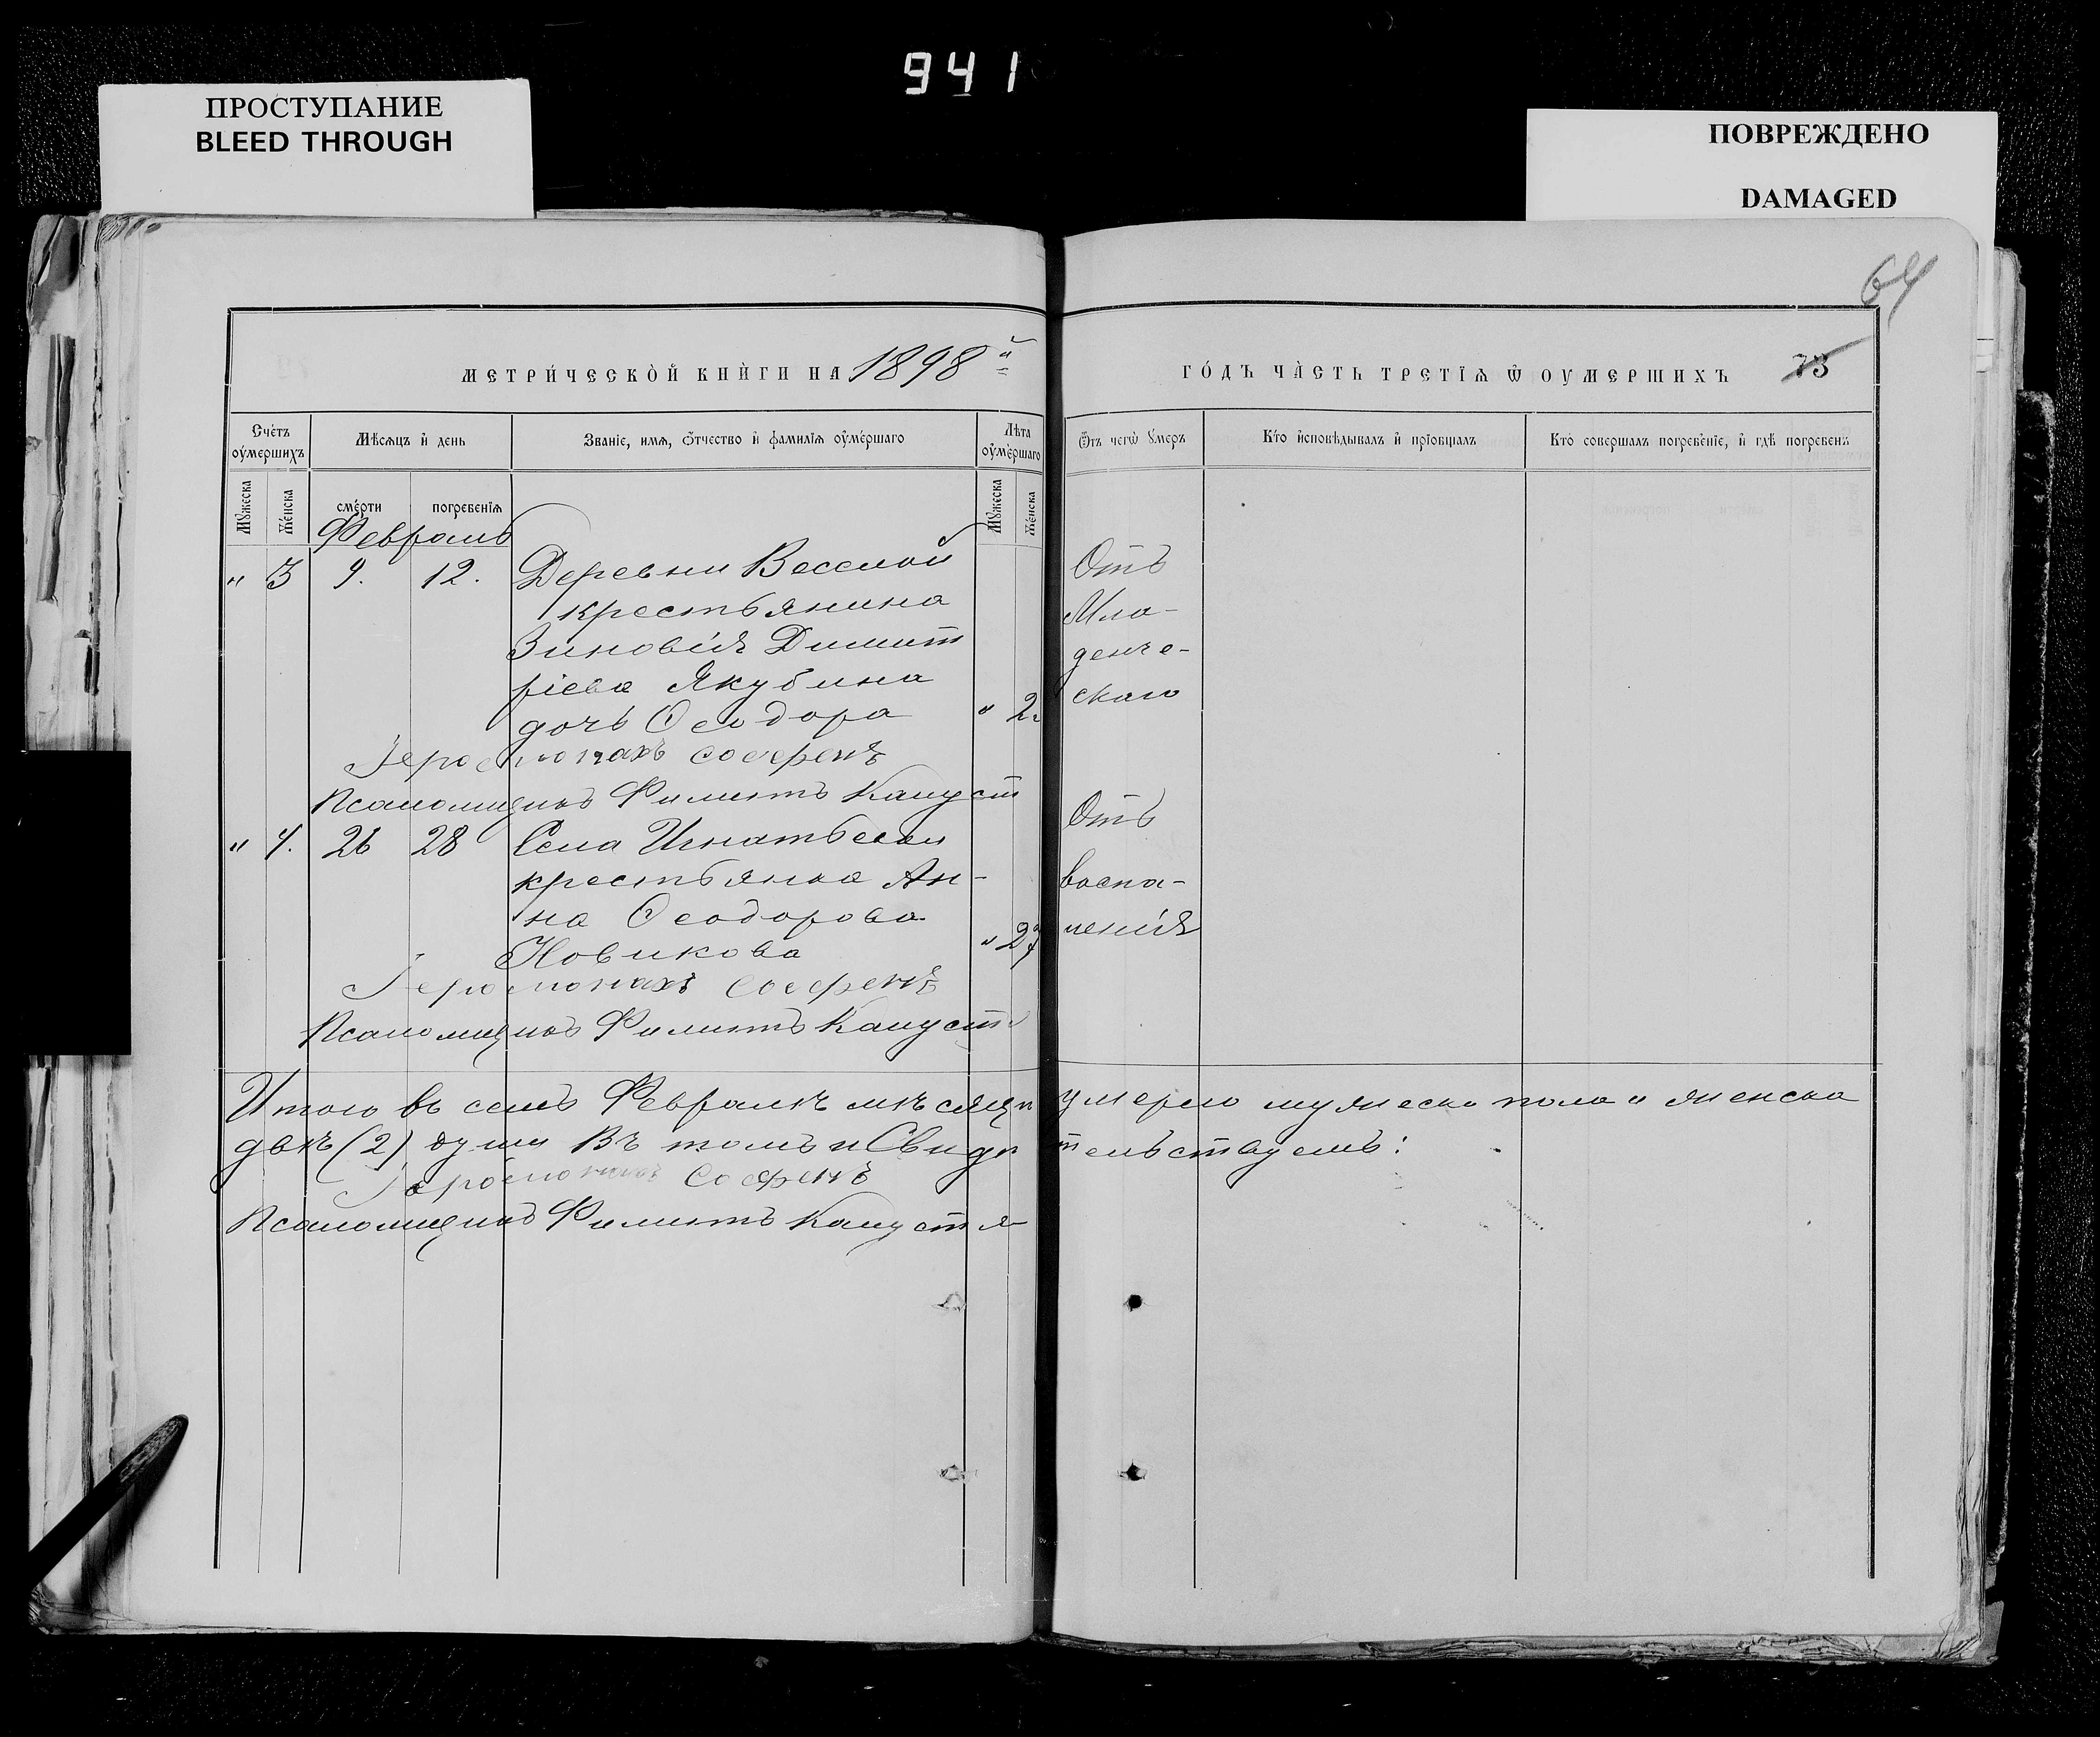 941
ПРОСТУПАНИЕ
BLEED THROUGH
ПОВРЕЖДЕНО
DAMAGED
64
МЕТРИ́ЧЕСКОЙ КНИ́ГИ НА 1898й
ГО́ДЪ ЧА́СТЬ ТРЕТІѦ Ѿ ОУМЕРШИХЪ 73
Сче́тъ оу҆ме́ршихъ
Мѣсѧцъ и҆ день
Званіе, имѧ, ѻ҆тчество и҆ фамиліѧ оу҆ме́ршаго
Лѣта оу҆ме́ршаго
Ѿ чегѡ̀ ᲂумеръ
Кто̀ и҆сповѣ́дывалъ и҆ прїѡбща́лъ
Кто̀ соверша́лъ погребе́нїе, и҆ гдѣ̀ погребе́нъ
Мꙋжеска
Же́нска
сме́рти
погребенїѧ
Мꙋжеска
Же́нска
Февраль
" 3 9. 12. Деревни Веселой
крестьянина
Зиновія Димит
ріева Якубина
дочь Ѳеодора " 2.
Отъ
Мла-
денче-
скаго
Іеромонахъ
Псаломщикъ Филиппъ Капуст
" 4. 26 28 Села Игнатьевки
крестьянка Ан-
на Ѳеодорова
Новикова " 27
Отъ
воспа-
ленія
Іеромонахъ
Псаломщикъ Филиппъ Капуст
Итого въ семъ Февралѣ мѣсяцѣ умерло мужеска пола и женска
двѣ (2) души Въ томъ и Свидѣтельствуемъ:
Іеромонахъ
Псаломщикъ Филиппъ Капустя